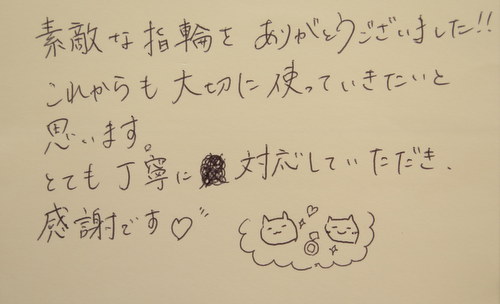 素敵な指輪を ありがとうございました!!
これからも 大切に 使っていきたいと
思います。
とても 丁寧に 対応していただき、
感謝です♡